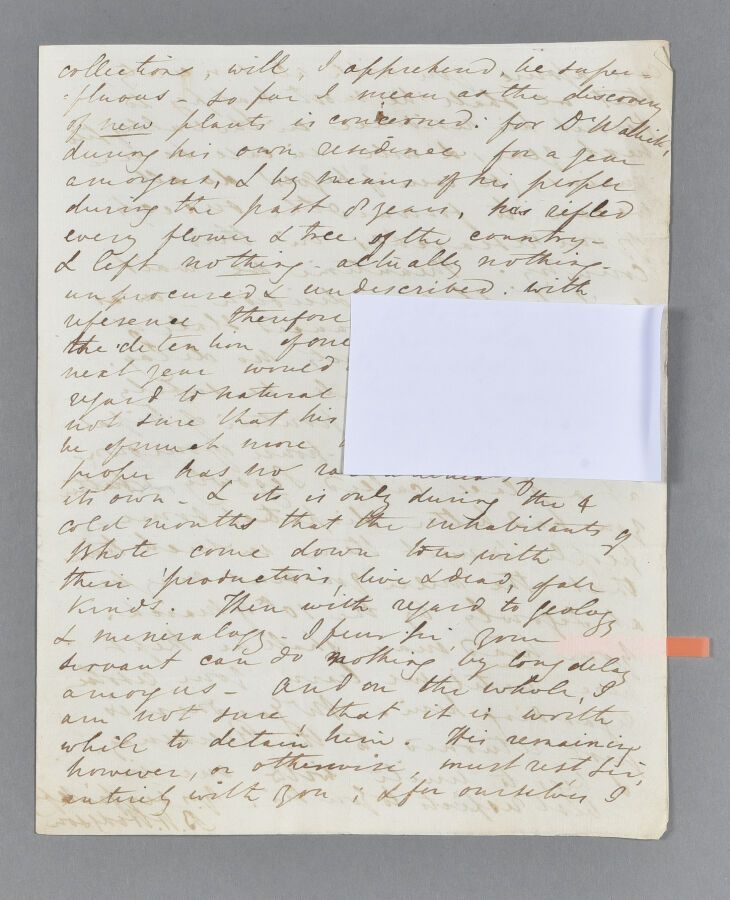 collections, will, I apprehend, be super=
=fluous - so far I mean as the discovery
of new plants is concerned: for Dr Wallich,
during his own residence for a year
amongus, & by means of his people
during the past 8 years, has rifled
every flower & tree of the country -
& left nothing - actually nothing -
unprocured & undescribed. with
reference therefore
the detention of one
next year would
regard to natural
not sure that his
be of much more
proper has no
its own - & it is only during the 4
cold months that the inhabitants of
Bhote come down to us with
their productions, live & dead, of all
Kinds. Then with regard to Geology
& mineralogy - I fear Sir, your
servant can do nothing by long delay
amongus - And on the whole, I
am not sure that it is worth
while to detain him. His remaining
however, or otherwise, must rest Sir,
entirely with you; & for ourselves I